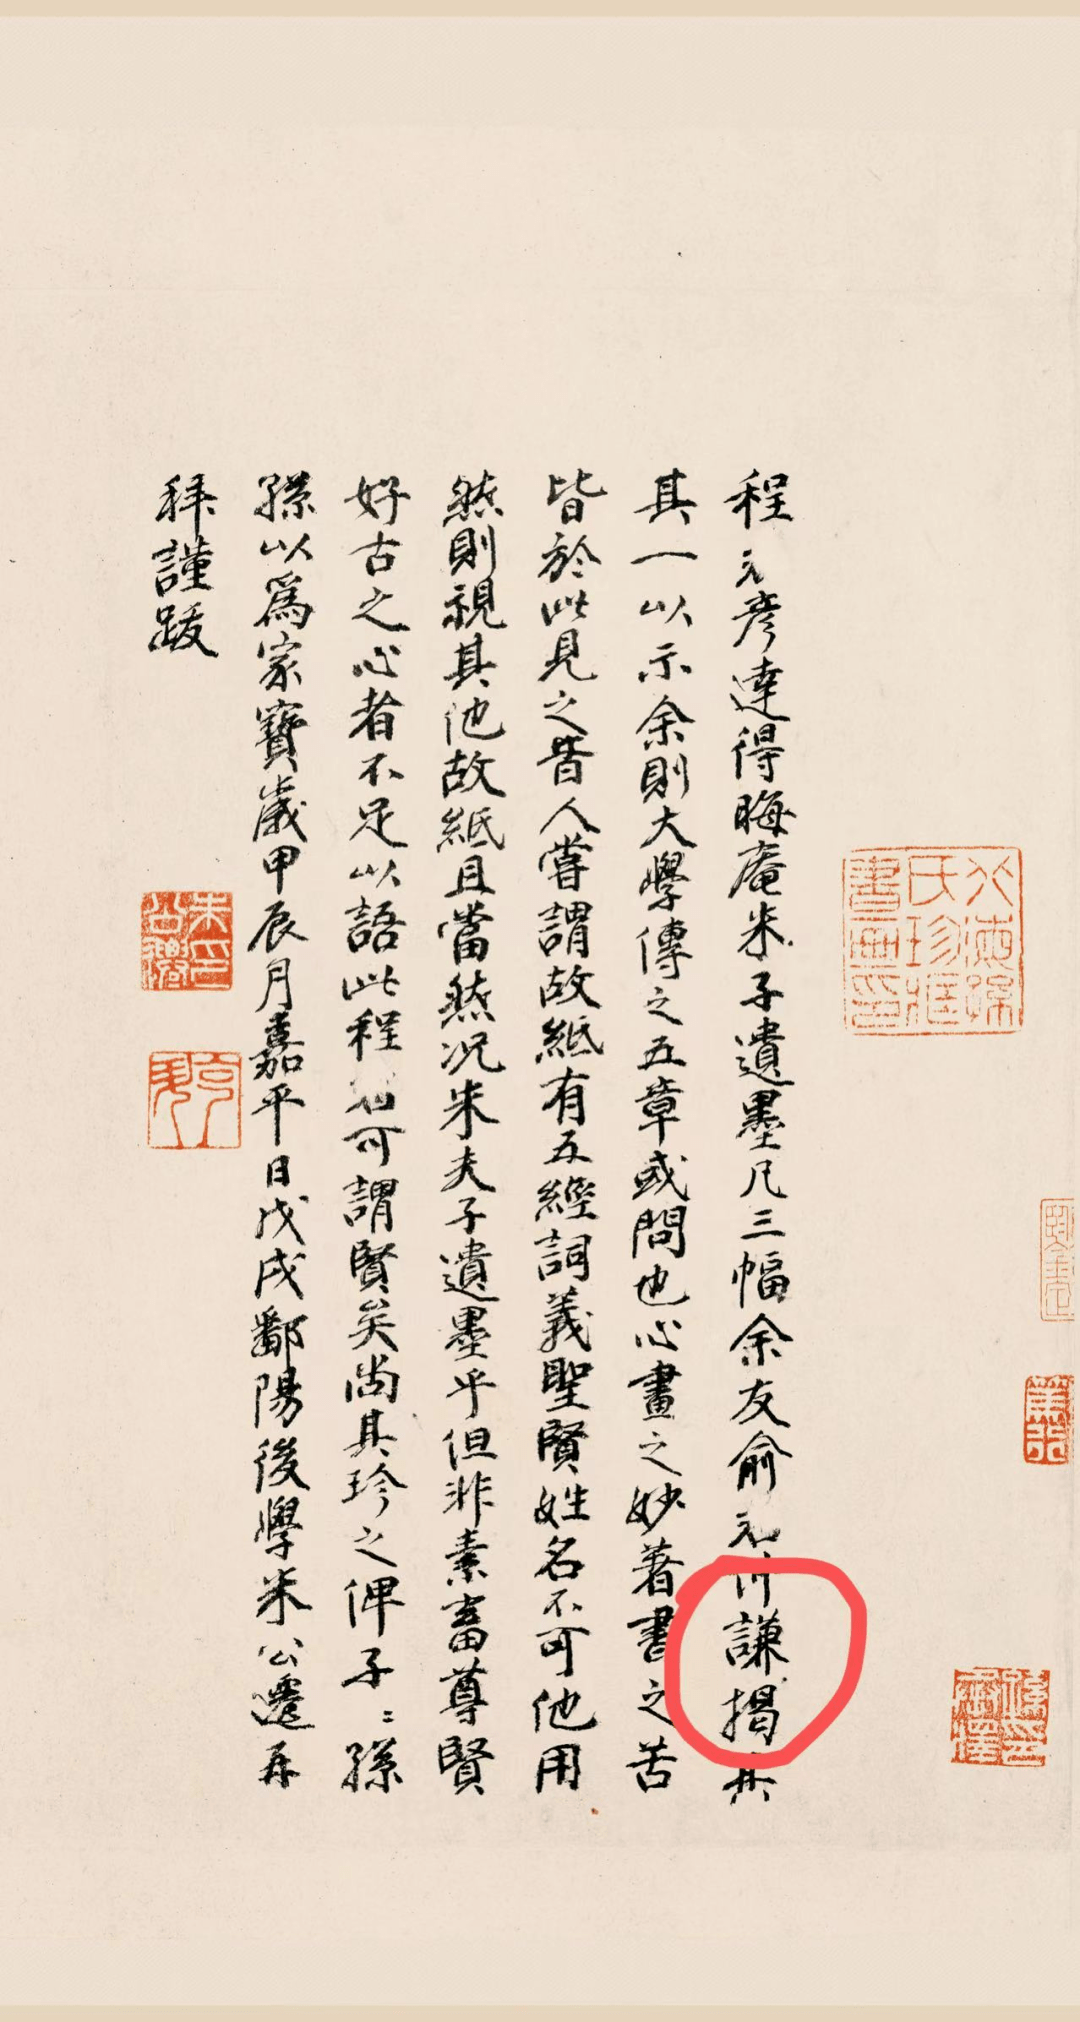 程元彦達得晦庵朱子遺墨凡三幅余友俞元川謙揭其
其一以示余則大學傳之五章或問也心畫之妙著書之苦
皆於此見之昔人嘗謂故紙有五經詞義聖賢姓名不可他用
然則視其他故紙且當然況朱夫子遺墨乎但非素畜尊賢
好古之心者不足以語此程可謂賢矣尚其珍之俾子〻孫
孫以為家寶歲甲辰月嘉平日戊戌鄱陽後學朱公遷再
拜謹跋
朱印公遷